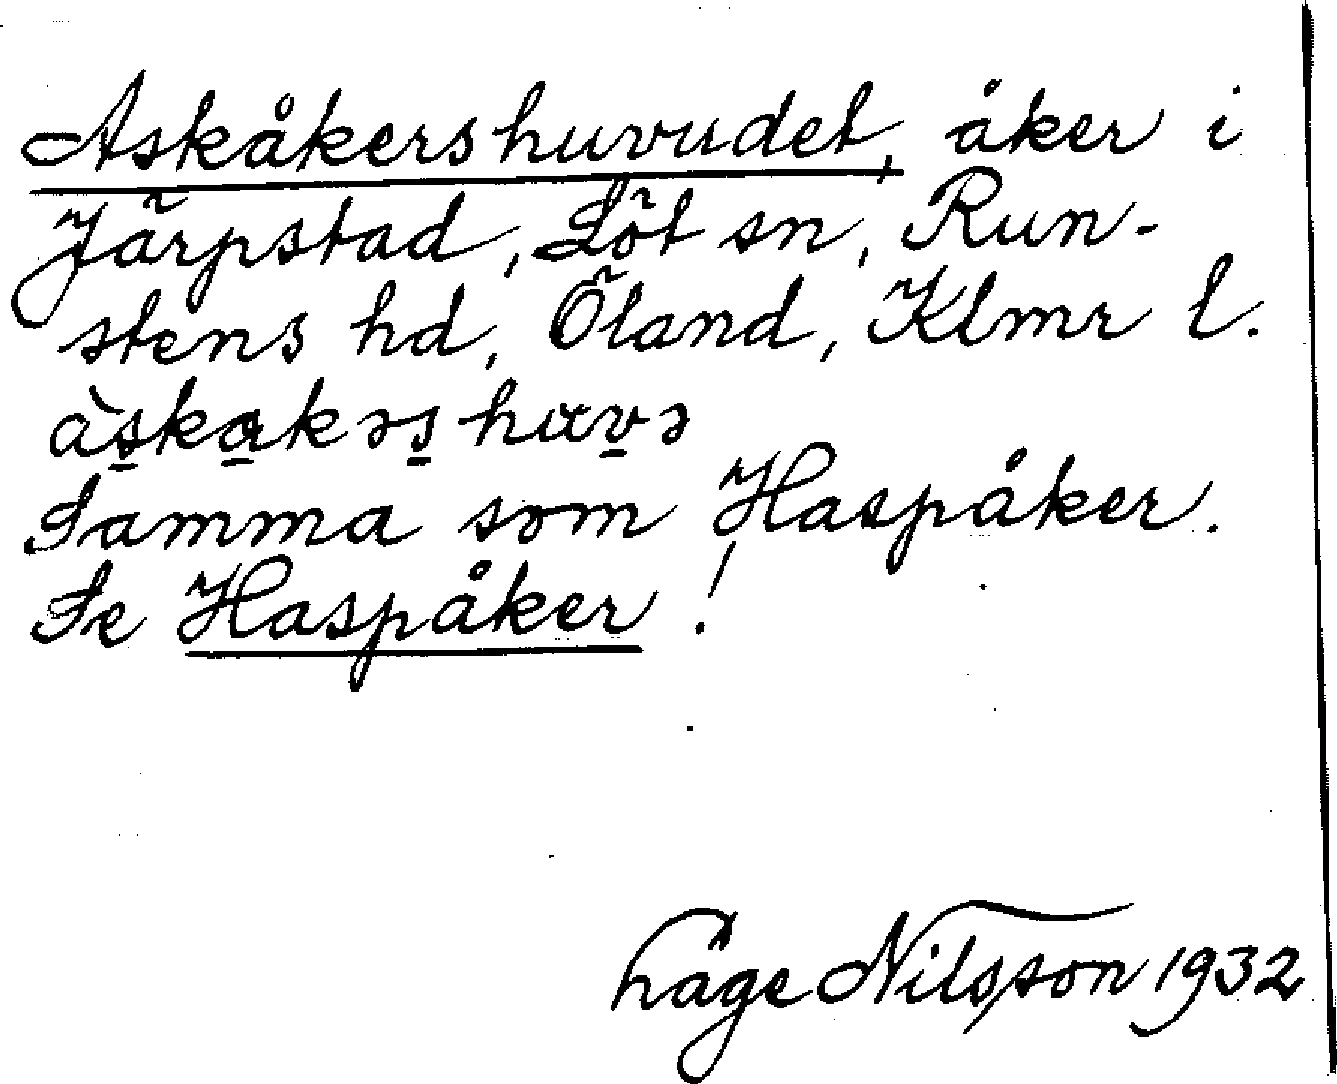 Askåkershuvudet, åker i
Järpstad, Löt sn, Run-
stens hd, Öland, Klmr l.
àskakəshuvə
Samma som Haspåker.
Se Haspåker!
Nilsson 1932